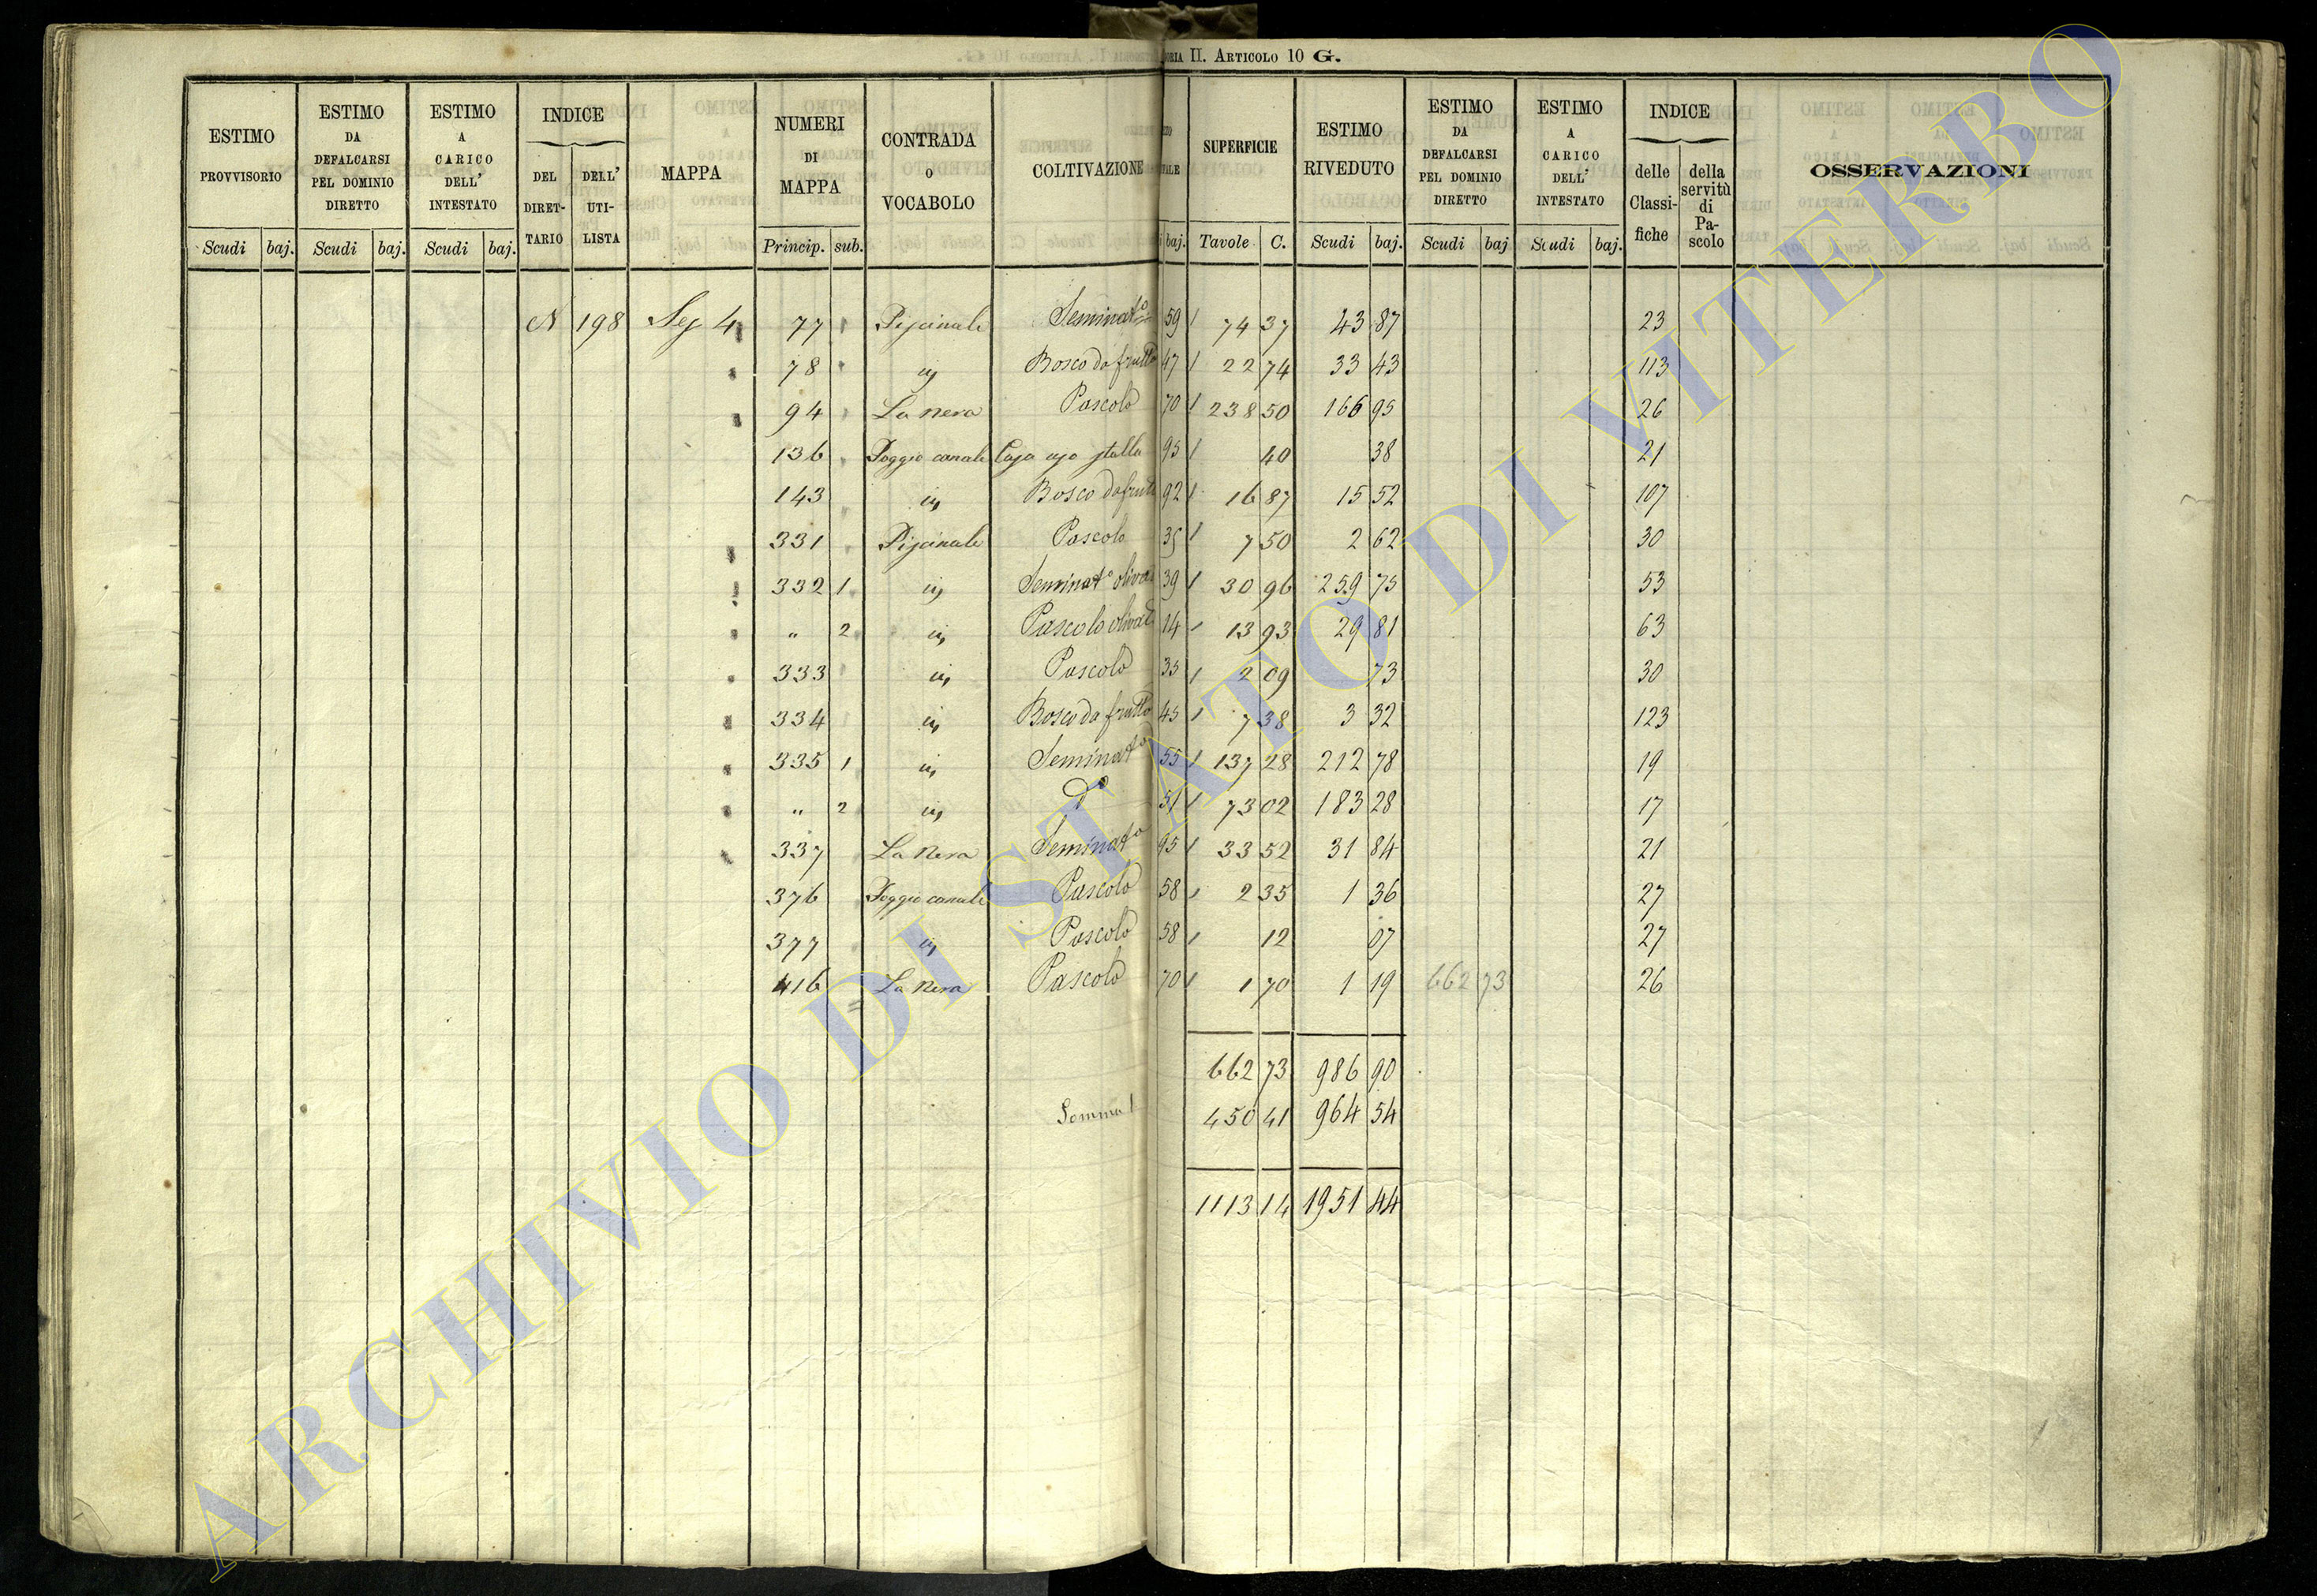 ORIA II. ARTICOLO 10 G.
ESTIMO PROVVISORIO
ESTIMO DA DEFALCARSI PEL DOMINIO DIRETTO
ESTIMO A CARICO DELL' INTESTATO
INDICE
DEL DIRET- TARIO
DELL' UTI- LISTA
MAPPA
NUMERI DI MAPPA
CONTRADA O VOCABOLO
COLTIVAZIONE
SUPERFICIE
ESTIMO RIVEDUTO
ESTIMO DA DEFALCARSI PEL DOMINIO DIRETTO
ESTIMO A CARICO DELL' INTESTATO
INDICE
delle Classi- fiche
della servitù di Pa- scolo
OSSERVAZIONI
Scudi baj. Scudi baj. Scudi baj. Princip. sub. baj. Tavole C. Scudi baj. Scudi baj Scudi baj.
N 198 Seg 4 77 Piscinale Seminato 59 74 37 43 87 23
78 id Bosco da frutto 47 22 74 33 43 113
94 La Nera Pascolo 70 238 50 166 95 26
136 Poggio canale Casa uso stalla 95 40 38 21
143 id Bosco da frutto 92 16 87 15 52 107
331 Piscinale Pascolo 35 7 50 2 62 30
332 1 id Seminato olivato 39 30 96 259 75 53
" 2 id Pascolo olivato 14 13 93 29 81 63
333 id Pascolo 35 2 09 73 30
334 id Bosco da frutto 45 7 38 3 32 123
335 1 id Seminato 55 137 28 212 78 19
" 2 id do 51 73 02 183 28 17
337 La Nera Seminato 95 33 52 31 84 21
376 Poggio canale Pascolo 58 2 35 1 36 27
377 id Pascolo 58 12 07 27
416 La Nera Pascolo 70 1 70 1 19 662 73 26
662 73 986 90
Somma 450 41 964 54
1113 14 1951 44
ARCHIVIO DI STATO DI VITERBO